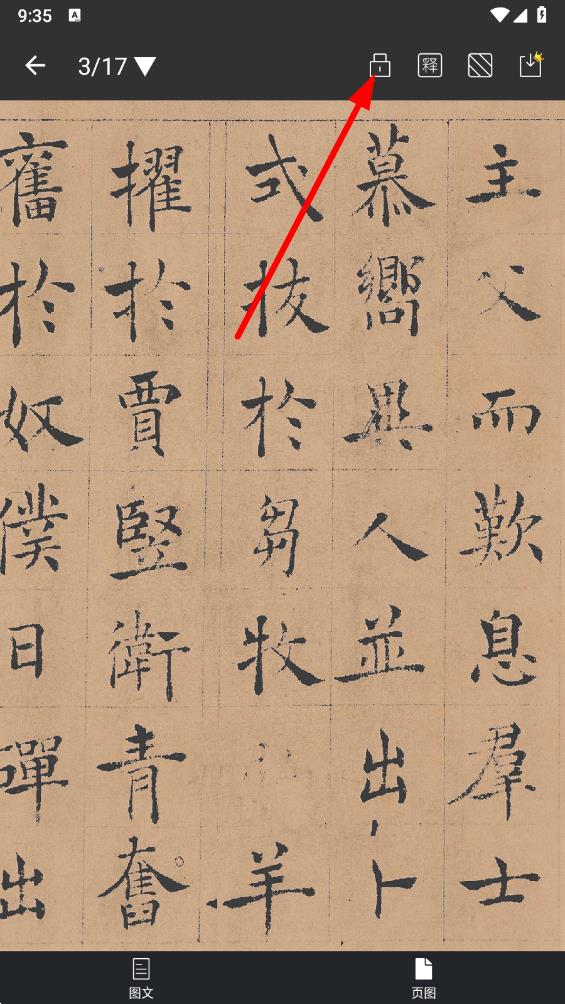 9:35
3/17
释
主父而歎息羣士
慕嚮異人並出卜
式拔於芻牧羊
擢於賈豎衛青奮
舊於奴僕日彈出
图文
页图